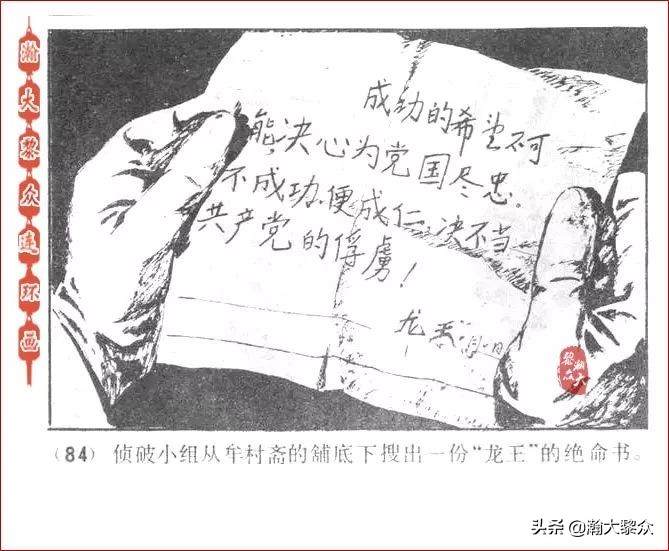 瀚大黎众連环画
成功的希望不可
能,决心为党国尽忠。
不成功,便成仁,决不当
共产党的俘虏!
龙 月 日
瀚大
黎众
(84) 侦破小组从牟村斋的舖底下搜出一份“龙王”的绝命书。
头条 @瀚大黎众